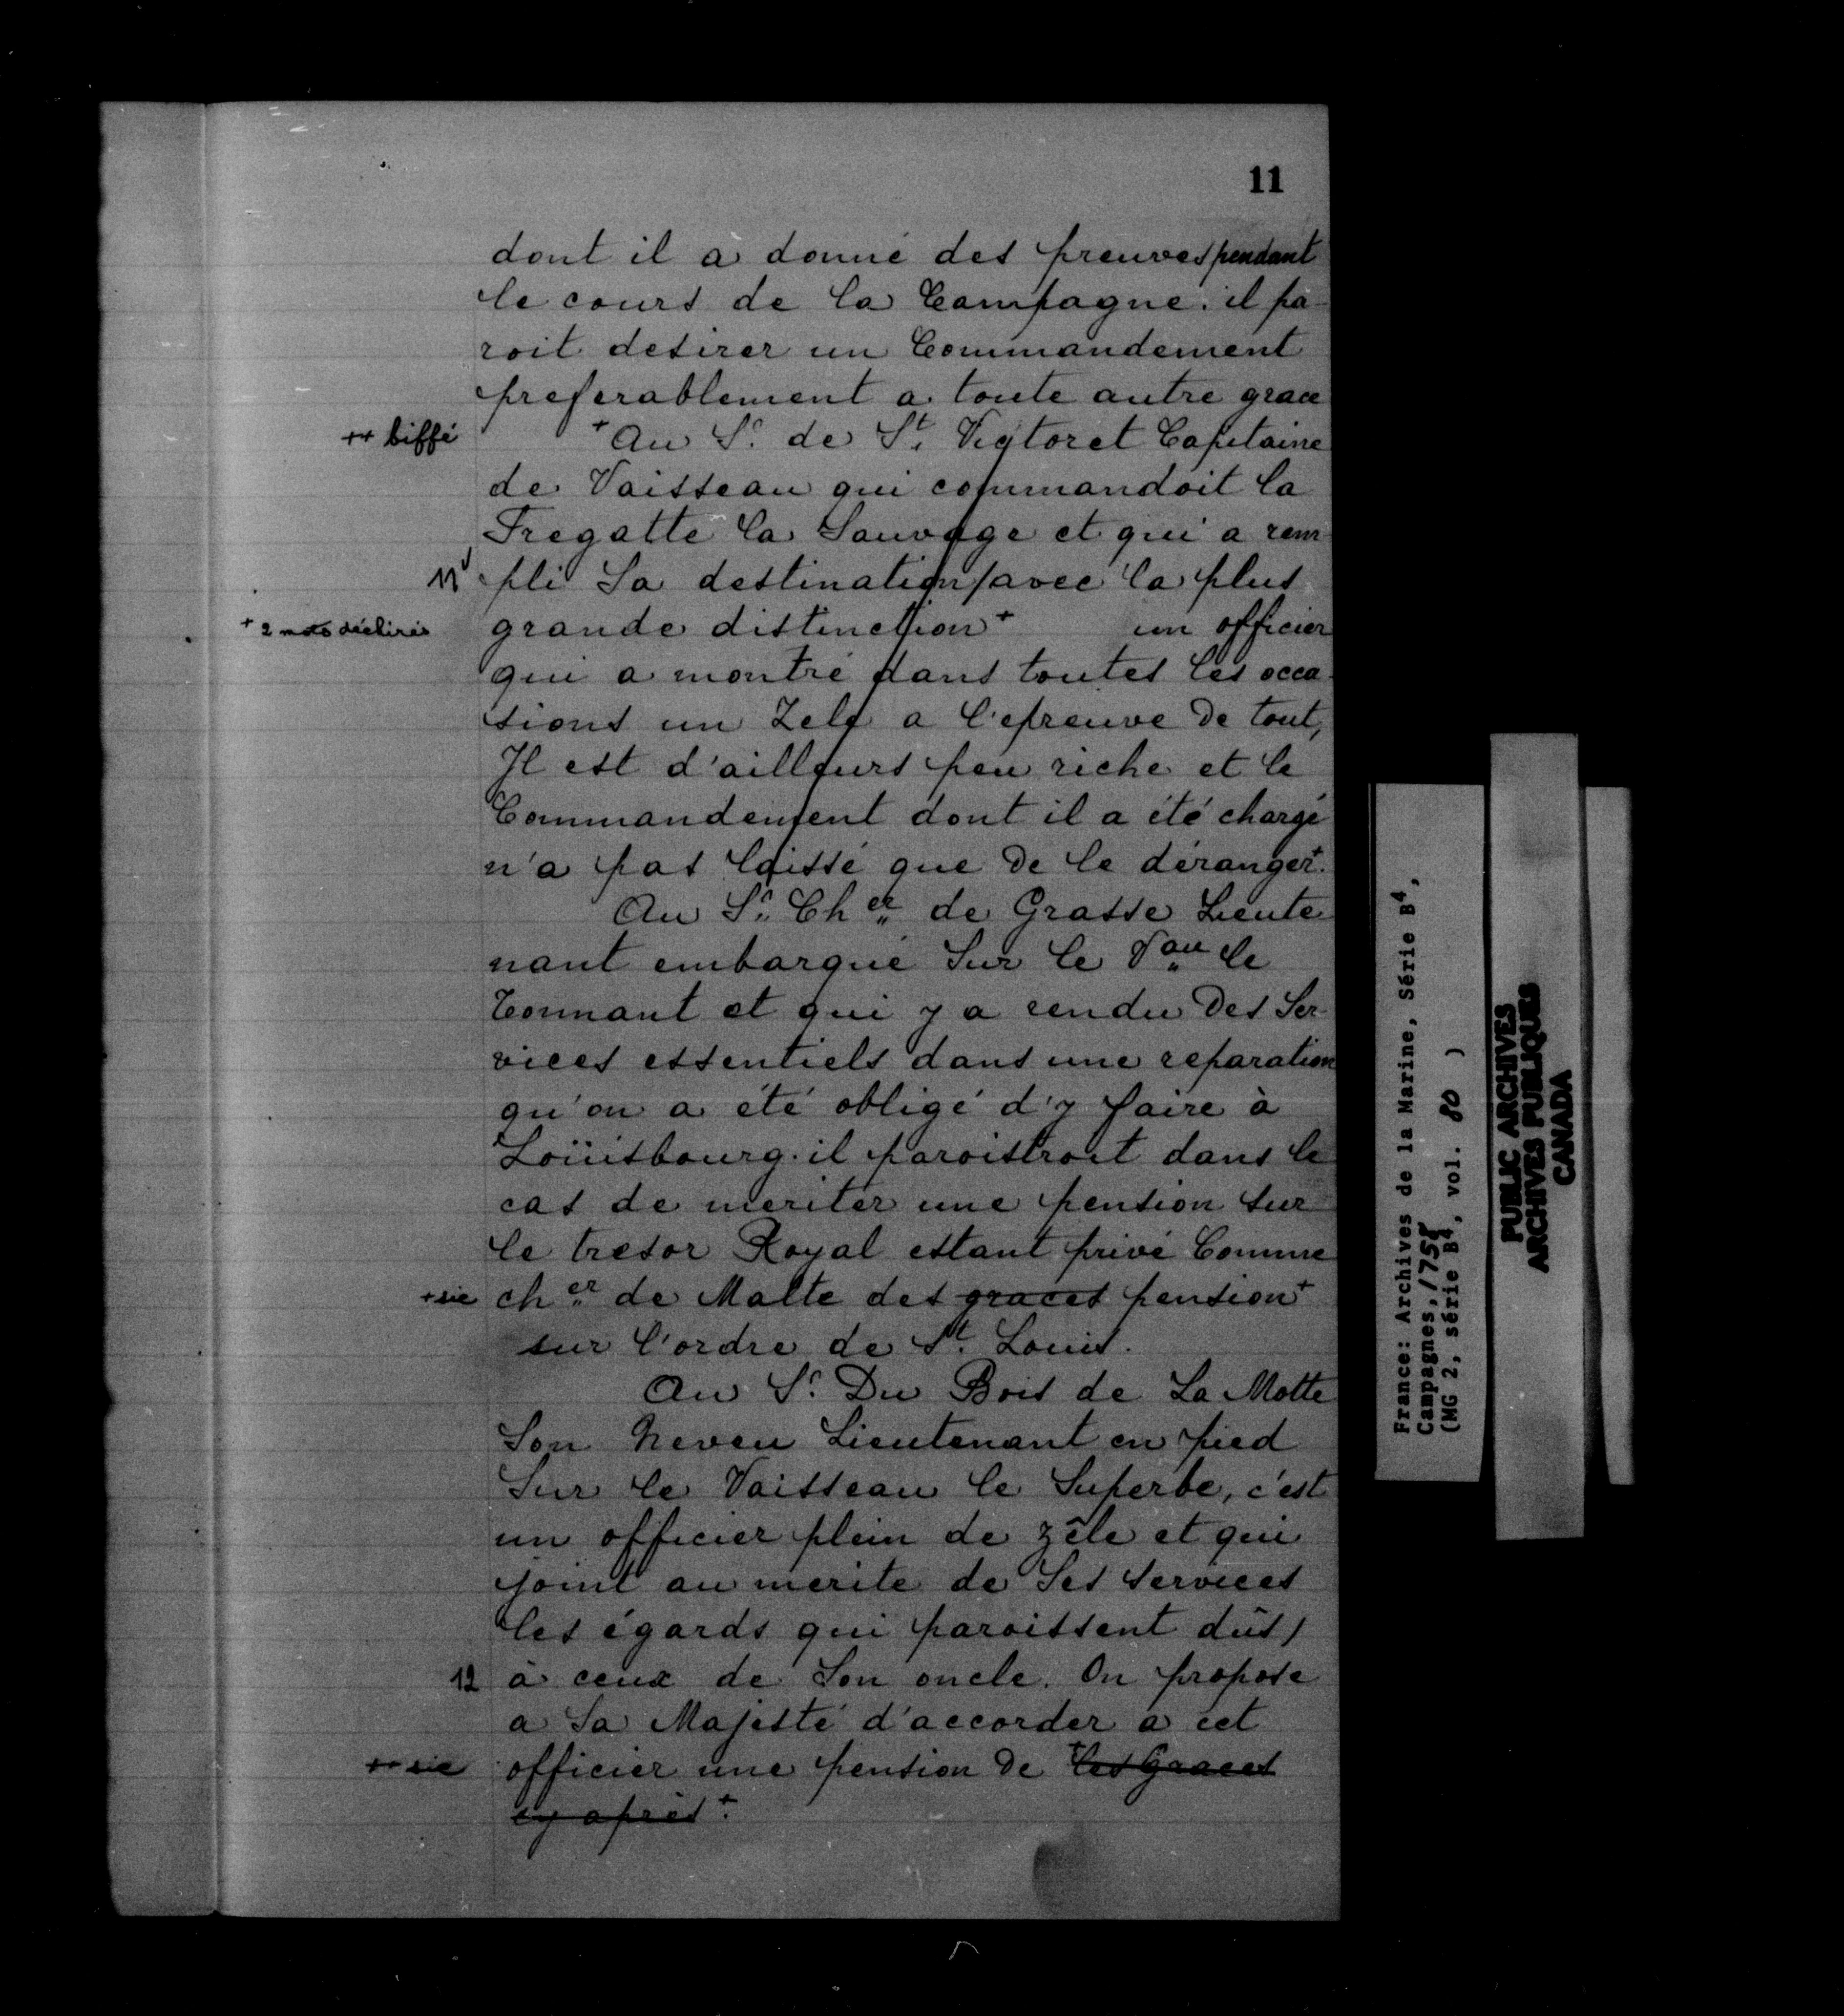 11
dont il a donné des preuves pendant
le cours de la Campagne. il pa-
roit desirer un Commandement
preferablement a toute autre grace
++ biffé
+Au Sr. de St. Victoret Capitaine
de Vaisseau qui commandoit la
Fregatte la Sauvage et qui a rem
11 pli Sa destination/avec la plus
+ 2 mots déchirés
grande distinction+ un officier
qui a montré dans toutes les occa-
sions un Zele a l'epreuve de tout,
Il est d'ailleurs peu riche et le
Commandement dont il a été chargé
n'a pas laissé que de le déranger+.
Au Sr. Cher. de Grasse Lieute
nant embarqué Sur le Vau le
Tonnant et qui y a rendu des Ser-
vices essentiels dans une reparation
qu'on a été obligé d'y faire à
Loüisbourg. il paroistroit dans le
cas de meriter une pension sur
le tresor Royal estant privé Comme
+sic cher. de Malte des graces pension+
sur l'ordre de St. Louis.
Au Sr. Du Bois de La Motte
Son Neveu Lieutenant en pied
Sur le Vaisseau le Superbe, c'est
un officier plein de zêle et qui
joint au merite de Ses Services
les égards qui paroissent dûs/
12 à ceux de Son oncle. On propose
a Sa Majesté d'accorder a cet
++ sic officier une pension de les Graces
cy après+.
France: Archives de la Marine, Série B4,
Campagnes, 1758
(MG 2, série B4, vol. 80 )
PUBLIC ARCHIVES
ARCHIVES PUBLIQUES
CANADA